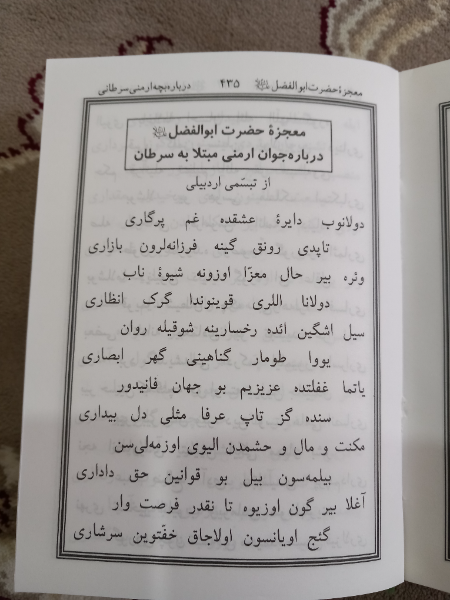 معجزهٔ حضرت ابوالفضل ۴۳۵ درباره‌بچه‌ارمنی‌سرطانی
معجزهٔ حضرت ابوالفضل
درباره‌جوان ارمنی مبتلا به سرطان
از تبسّمی اردبیلی
دولانوب دایرهٔ عشقده غم پرگاری
تاپدی رونق گینه فرزانه‌لرون بازاری
وئره بیر حال معزّا اوزونه شیوهٔ ناب
دولانا اللری قوینوندا گرک انظاری
سیل اشگین ائده رخسارینه شوقیله روان
یووا طومار گناهینی گهر ابصاری
یاتما غفلتده عزیزیم بو جهان فانیدور
سنده گز تاپ عرفا مثلی دل بیداری
مکنت و مال و حشمدن الیوی اوزمه‌لی‌سن
بیلمه‌سون بیل بو قوانین حق داداری
آغلا بیر گون اوزیوه تا نقدر فرصت وار
گئج اویانسون اولاجاق خفّتوین سرشاری